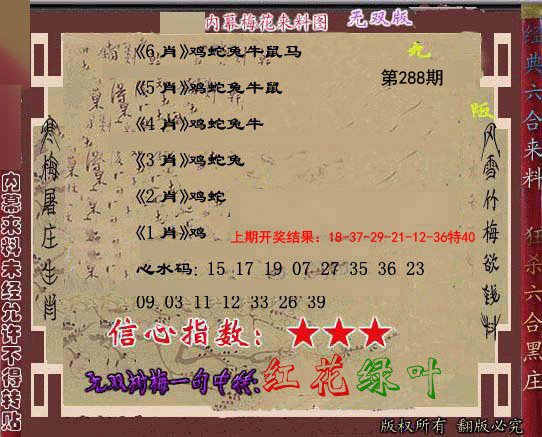 内幕梅花来料图 无双版
《6 肖》鸡蛇兔牛鼠马
第288期
《5 肖》鸡蛇兔牛鼠
《4 肖》鸡蛇兔牛
《3 肖》鸡蛇兔
《2 肖》鸡蛇
《1 肖》鸡
上期开奖结果：18-37-29-21-12-36特40
心水码: 15 17 19 07 27 35 36 23
09 03 11 12 33 26 39
信心指数：★★★
一句中特:红花绿叶
版权所有 翻版必究
寒梅屠庄生肖
风雪竹梅欲钱料
内幕来料未经允许不得转贴
经典六合来料 狂杀六合黑庄